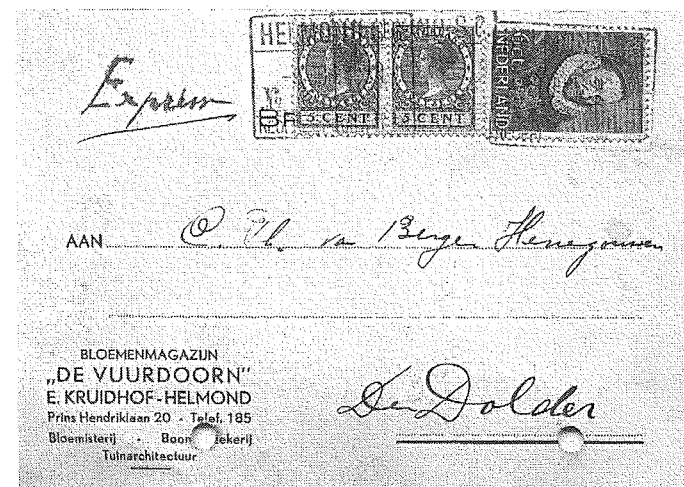 HELMOND
Express
5 CENT 5 CENT
NEDERLAND
AAN O. Th. van Bergen Henegouwen
BLOEMENMAGAZIJN
„DE VUURDOORN"
E. KRUIDHOF-HELMOND
Prins Hendriklaan 20 - Telef. 185
Bloemisterij - Boomkwekerij
Tuinarchitectuur
Den Dolder